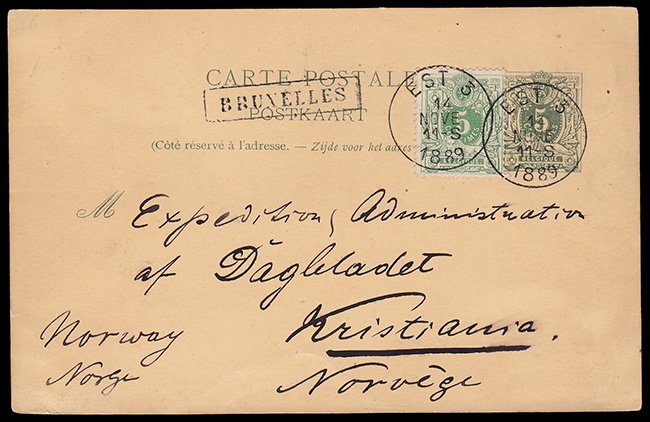 CARTE POSTALE
BRUXELLES
POSTKAART
(Côté réservé à l'adresse. — Zijde voor het adres
EST 3
14
NOVE
11-S
1889
5
BELGIQUE
EST 3
NOVE
11-S
1889
5
BELGIQUE
M Expedition, Administration
af Dagbladet
Kristiania.
Norway
Norge
Norvège